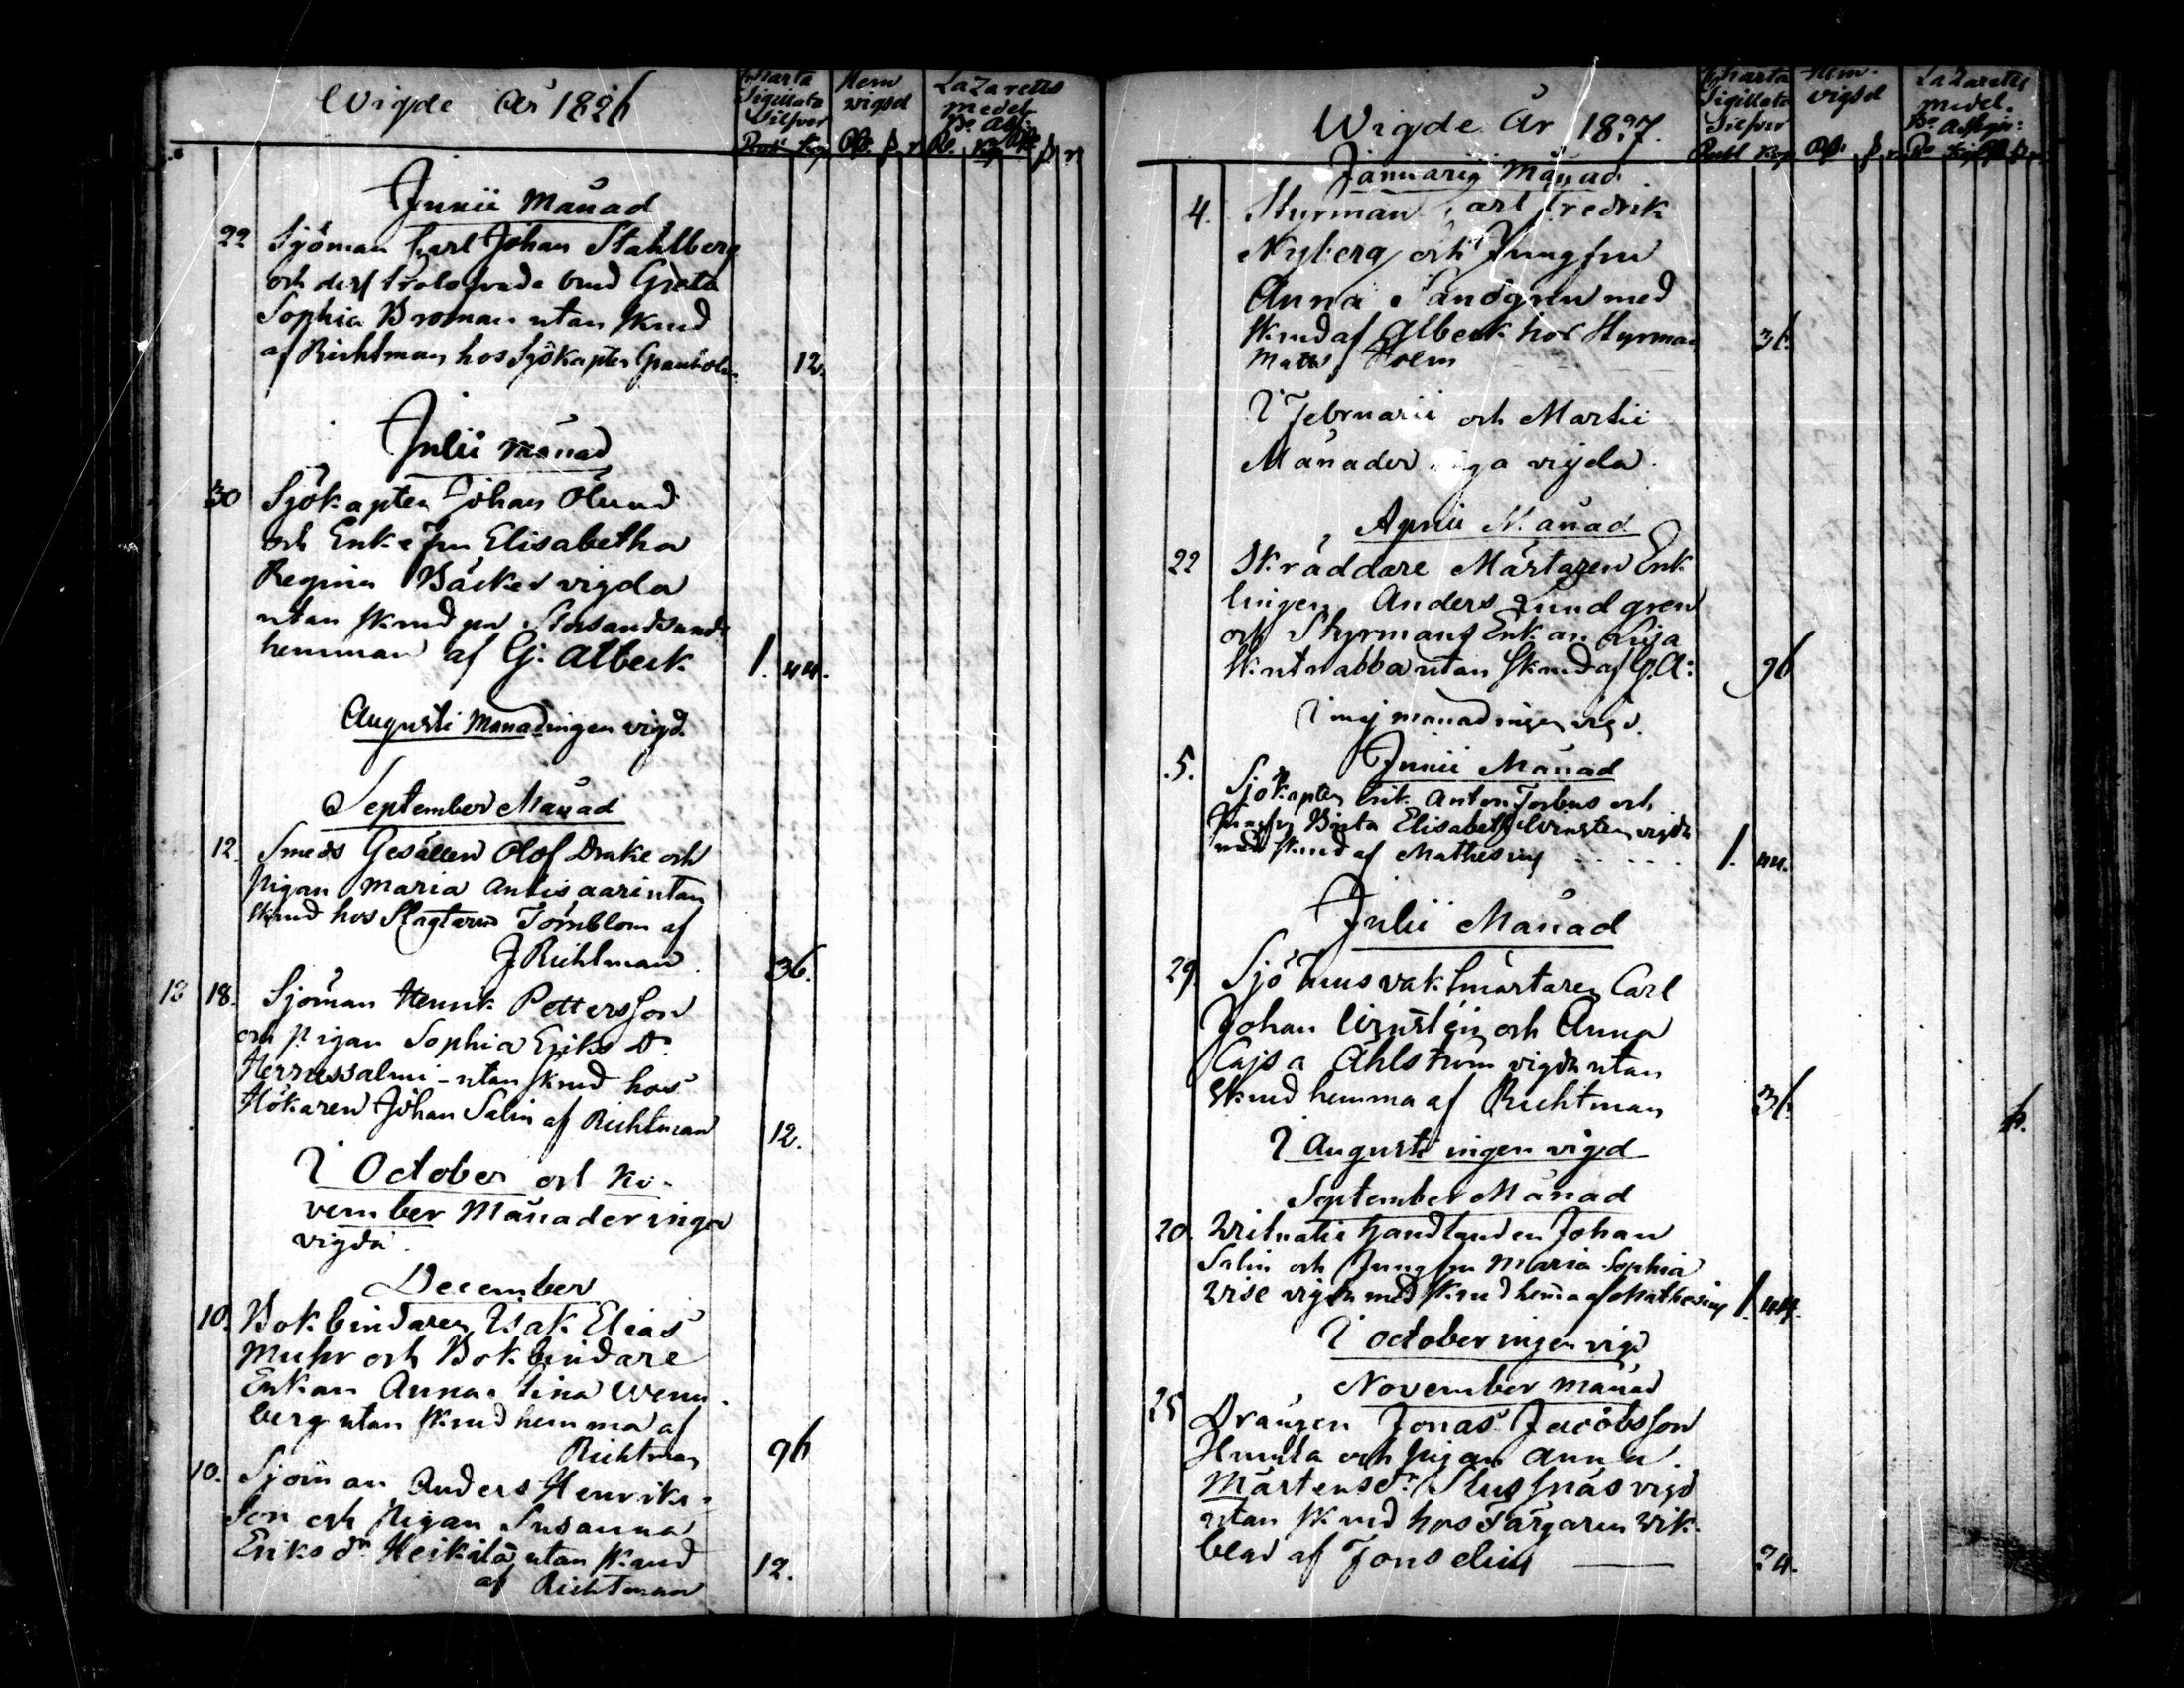 Wigde år 1826
Charta
Sigillata
Silfver
Hem
vigsd
Lazaretts
medel
Junii Månad
22 Sjöman Carl Johan Stahlberg
och dess trolofvade brud Greta
Sophia Broman utan skrud
af Richtman hos Sjökapten Granholm 12.
Julii Månad
30 Sjökapten Johan Ölund
och Enkefru Elisabetha
Regina Bäcker vigda
utan skrud på Storsandsunds
hemman af G: Albeck 1. 44.
Augusti Månad ingen vigd.
September Månad
12. Smeds Gesällen Olof Drake och
pigan Maria Antisaari utan
skrud hos Slagtaren Törnblom af
J Richtman 36.
13 18. Sjöman Henrik Pettersson
och pigan Sophia Eriks Dr
utan skrud hos
Hökaren Johan Salin af Richtman 12.
I October och No-
vember Månader inga
vigda.
December
10. Bokbindaren Isak Elias
Muhr och Bokbindare
Enkan Anna Lina Wenn-
berg utan skrud hemma af
Richtman 96
10. Sjöman Anders Henriks-
son och pigan Susanna
Eriks dr Heikilä utan skrud
af Richtman 12.
Wigde År 1827.
Charta
Sigillata
Silfver
Rubl Kop
Hem-
vigsd
Lazaretts
medel.
Januarii Månad
4. Styrman Carl Fredrik
Nyberg och Jungfru
Anna Sandgren med
skrud af Albeck hos Styrman 36.
Matts Holm
I Februarii och Martii
Månader inga vigda.
Aprill Månad
22 Skräddare Mästaren Enk
lingen Anders Lundgren
och Styrmans Enkan Lisa
Skutnabba utan skrud af G.A: 96
I maj månad ingen vigd.
Junii Månad
5. Sjökapten Erik Anton Forbus och
Jungfru Brita Elisabeth vigda
med skrud af Mathesius 1. 44.
Julii Månad
29. Sjötullsvaktmästaren Carl
Johan och Anna
Cajsa Åhlström vigda utan
skrud hemma af Richtman 36.
I Augusti ingen vigd
September Månad
20. Victualie Handlanden Johan
Salin och Jungfru Maria Sophia
Wise vigda med skrud hemma af Mathesius 1. 44.
I October ingen vigd
November Månad
25 Drängen Jonas Jacobsson
och pigan Anna
Mårtensdr Slusnäs vigd
utan skrud hos Färgaren Wik-
blad af Jonselius 24.